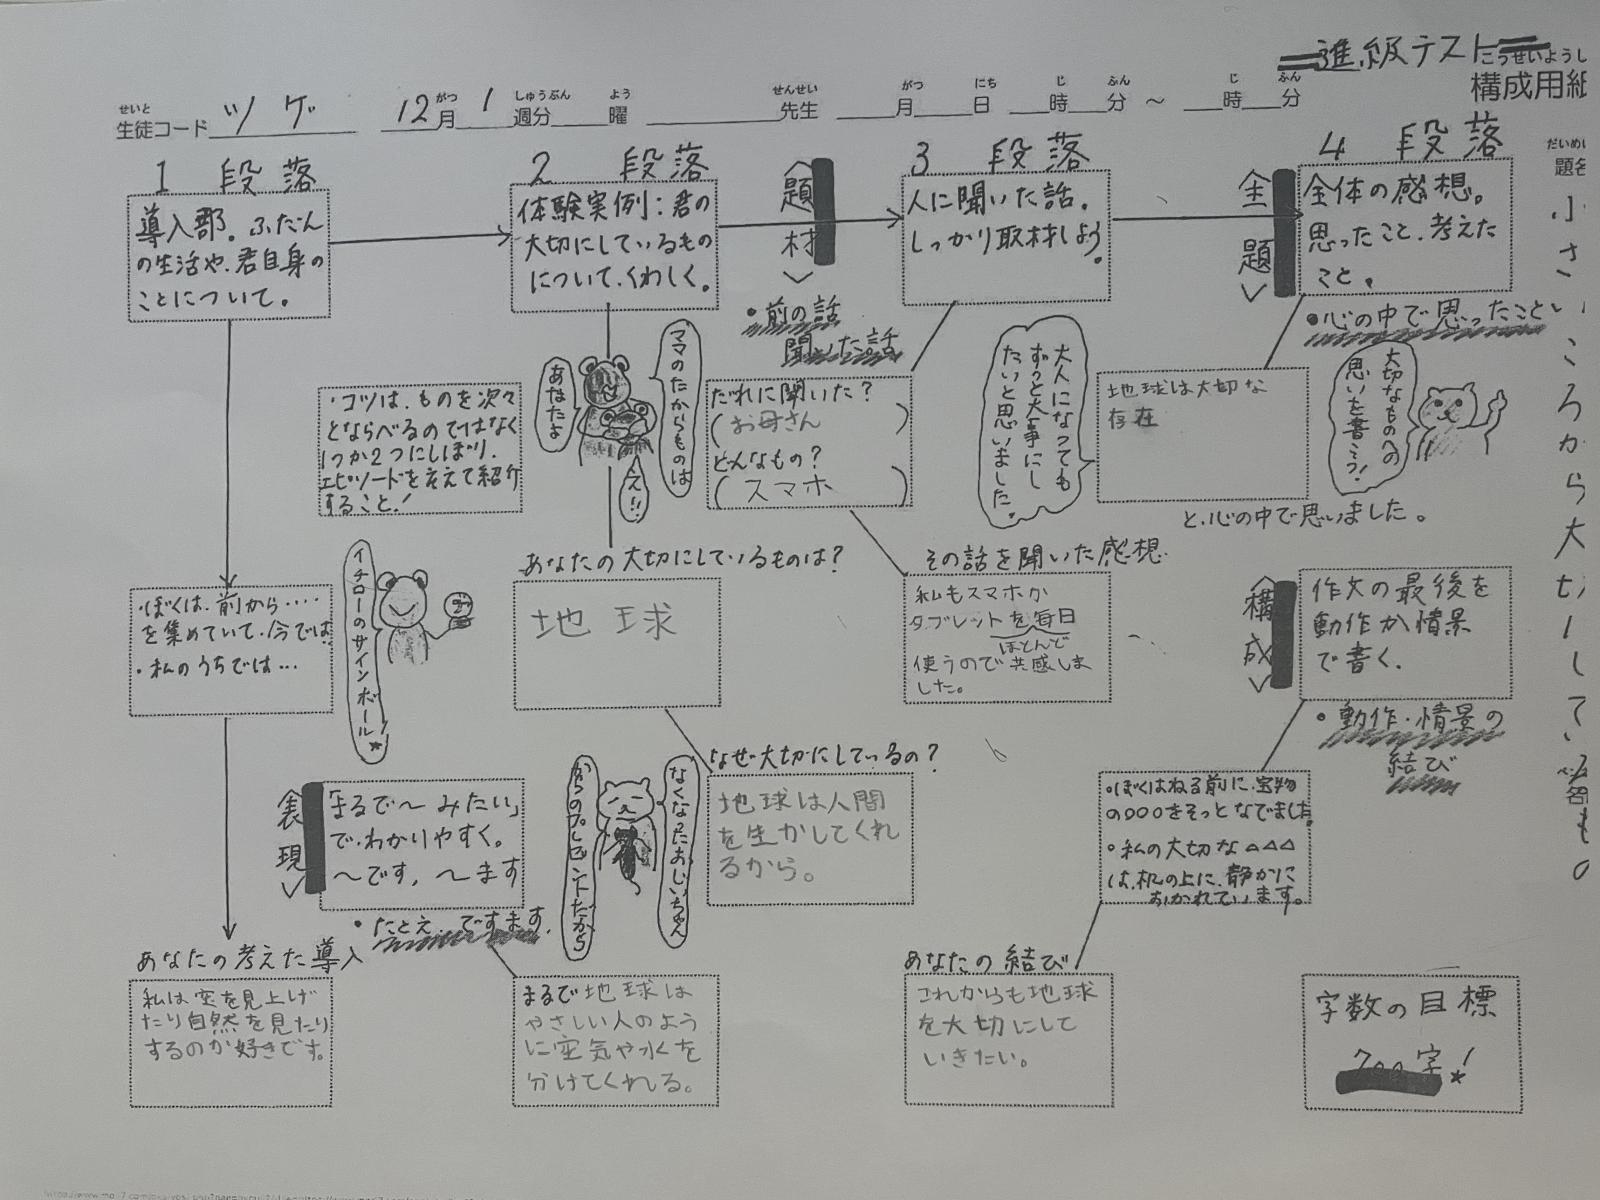 進級テスト
こうせいようし
構成用紙
せいと がつ しゅうぶん よう せんせい がつ にち じ ふん じ ふん
生徒コード ツゲ 12月 1 週分 曜 先生 月 日 時 分 ~ 時 分
だいめい
題名 小さいころから大切にしているもの
1 段落
導入部。ふだん
の生活や、君自身の
ことについて。
・ぼくは、前から‥‥
を集めていて、今では
・私のうちでは…
イチローのサインボール
あなたの考えた導入
私は空を見上げ
たり自然を見たり
するのが好きです。
2 段落
体験実例:君の
大切にしているもの
について、くわしく。
・コツは、ものを次々
とならべるのではなく
1つか2つにしぼり、
エピソードをそえて紹介
すること!
ママのたからものは
あなたよ
え!!
あなたの大切にしているものは?
地球
なぜ大切にしているの?
地球は人間
を生かしてくれ
るから。
なくなったおじいちゃん
からのプレゼントだから
<表現>
「まるで〜みたい」
で、わかりやすく。
〜です,〜ます
・たとえ、ですます。
まるで地球は
やさしい人のよう
に空気や水を
分けてくれる。
<題材>
・前の話
聞いた話
3 段落
人に聞いた話。
しっかり取材しよう。
だれに聞いた?
(お母さん)
どんなもの?
(スマホ)
その話を聞いた感想
私もスマホか
タブレットを毎日
ほとんど
使うので共感しま
した。
大人になっても
ずっと大事にし
たいと思いました。
<主題>
4 段落
全体の感想。
思ったこと、考えた
こと。
・心の中で思ったこと
大切なものへの
思いを書こう!
地球は大切な
存在
と、心の中で思いました。
<構成>
作文の最後を
動作か情景
で書く。
・動作・情景の
結び
・ぼくはねる前に、宝物
の○○○をそっとなでました。
・私の大切な△△△
は、机の上に、静かに
おかれています。
あなたの結び
これからも地球
を大切にして
いきたい。
字数の目標
700字!